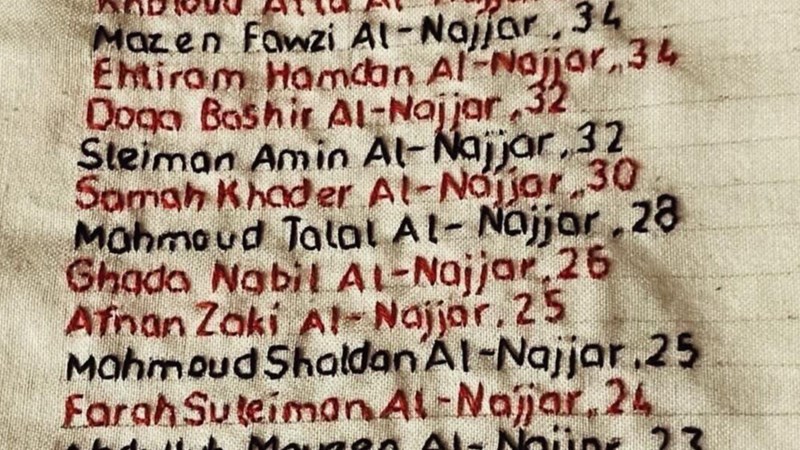 Al-Najjar
Mazen Fawzi Al-Najjar, 34
Ehtiram Hamdan Al-Najjar, 34
Doaa Bashir Al-Najjar, 32
Sleiman Amin Al-Najjar, 32
Samah Khader Al-Najjar, 30
Mahmoud Talal Al-Najjar, 28
Ghada Nabil Al-Najjar, 26
Afnan Zaki Al-Najjar, 25
Mahmoud Shaldan Al-Najjar, 25
Farah Suleiman Al-Najjar, 24
Al-Najjar, 23